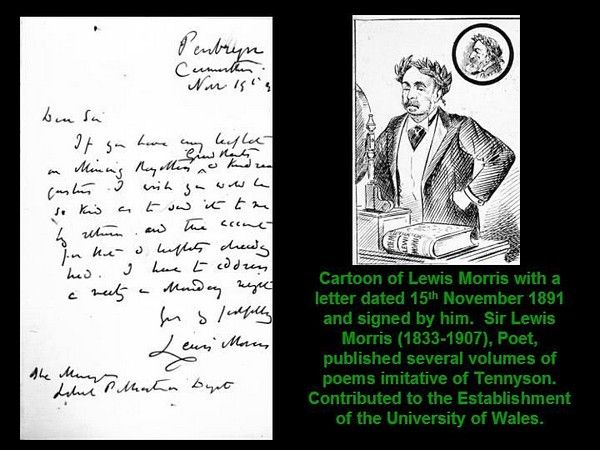 Penbryn
Carmarthen
Nov 15th 9
Dear Sir
If you have any leaflet
on Mining Royalties, Ground Rents & Kindred
I wish you would be
so kind as to send it to me
by return and the account
for the leaflets already
had. I have to address
a meeting on Monday night
Yrs faithfully
Lewis Morris
The Manager
Publication Dept
Cartoon of Lewis Morris with a
letter dated 15th November 1891
and signed by him. Sir Lewis
Morris (1833-1907), Poet,
published several volumes of
poems imitative of Tennyson.
Contributed to the Establishment
of the University of Wales.